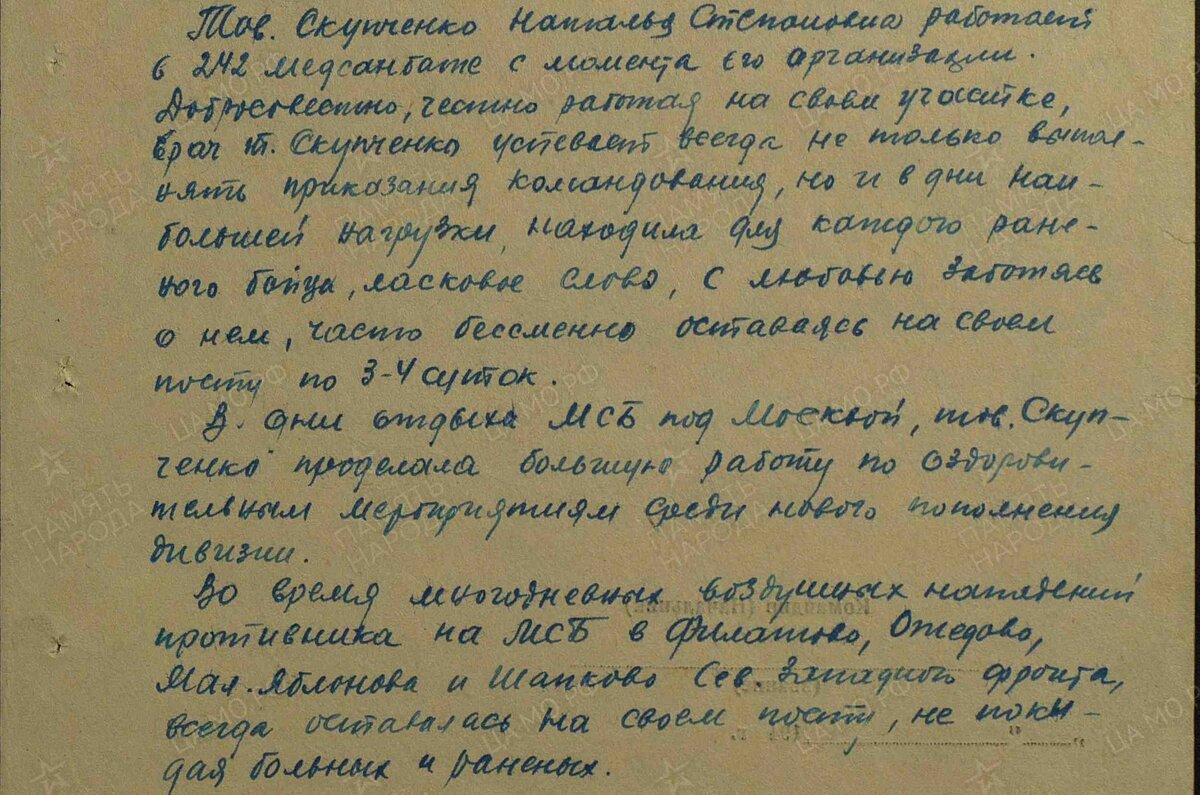 Тов. Скупченко Наталья Степановна работает
в 242 медсанбате с момента его организации.
Добросовестно, честно работая на своем участке,
врач т. Скупченко успевает всегда не только выпол-
нять приказания командования, но и в дни наи-
большей нагрузки, находила для каждого ране-
ного бойца, ласковое слово, с любовью заботясь
о нем, часто бессменно оставаясь на своем
посту по 3-4 суток.
В дни отдыха МСБ под Москвой, тов. Скуп-
ченко проделала большую работу по оздорови-
тельным мероприятиям среди нового пополнения
дивизии.
Во время многодневных воздушных нападений
противника на МСБ в Филатово, Ожедово,
Мал. Яблонова и Шапково Сев. Западного фронта,
всегда оставалась на своем посту, не поки-
дая больных и раненых.
ПАМЯТЬ НАРОДА
ЦАМО.РФ